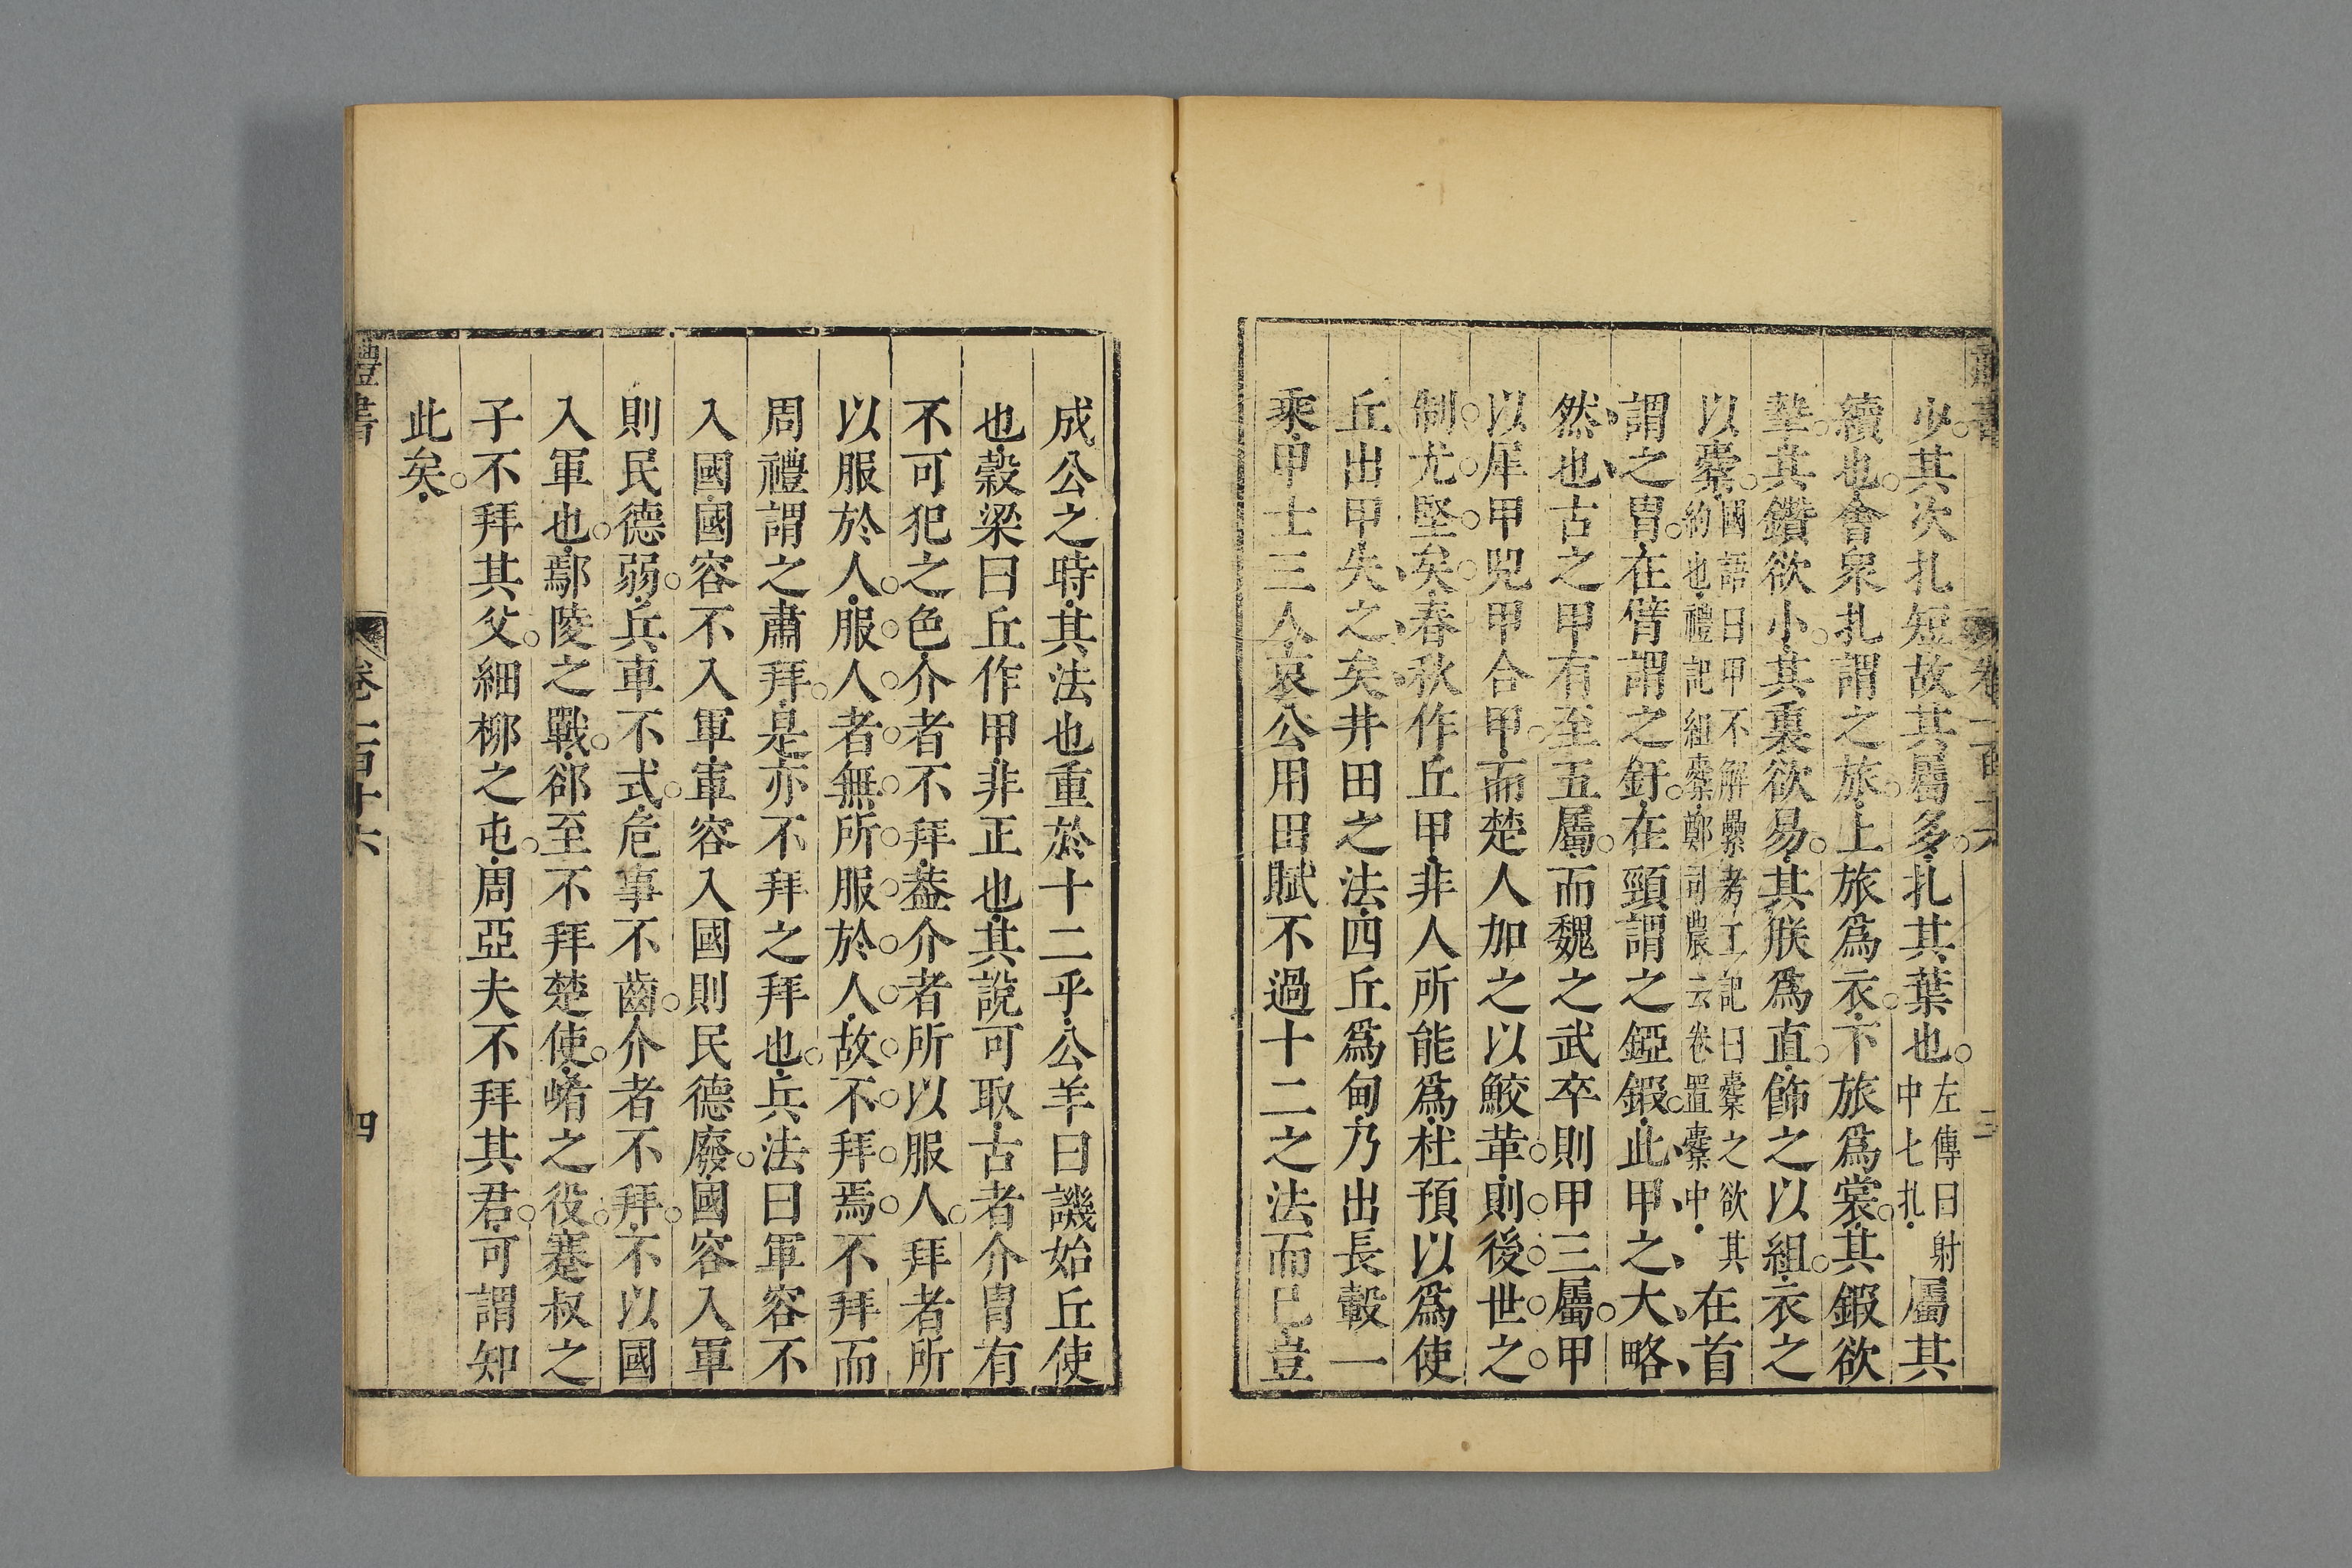 少其次扎短故其屬多扎其葉也左傳曰射中七扎屬其
續也會衆扎謂之旅上旅爲衣下旅爲裳其鍜欲
摯其鑽欲小其裏欲易其朕爲直飾之以組衣之
以櫜國語曰甲不解纍考工記曰櫜之欲其約也禮記組櫜鄭司農云卷置櫜中在首
謂之胄在臂謂之釬在頸謂之錏鍜此甲之大略
然也古之甲有至五屬而魏之武卒則甲三屬甲
以犀甲兕甲合甲而楚人加之以鮫革則後世之
制尤堅矣春秋作丘甲非人所能爲杜預以爲使
丘出甲失之矣井田之法四丘爲甸乃出長轂一
乘甲士三人哀公用田賦不過十二之法而已豈
成公之時其法也重於十二乎公羊曰譏始丘使
也榖梁曰丘作甲非正也其說可取古者介胄有
不可犯之色介者不拜葢介者所以服人拜者所
以服於人服人者無所服於人故不拜焉不拜而
周禮謂之肅拜是亦不拜之拜也兵法曰軍容不
入國國容不入軍軍容入國則民德廢國容入軍
則民德弱兵車不式危事不齒介者不拜不以國
入軍也鄢陵之戰郤至不拜楚使崤之役蹇叔之
子不拜其父細柳之屯周亞夫不拜其君可謂知
此矣
禮書
卷一百十六
四